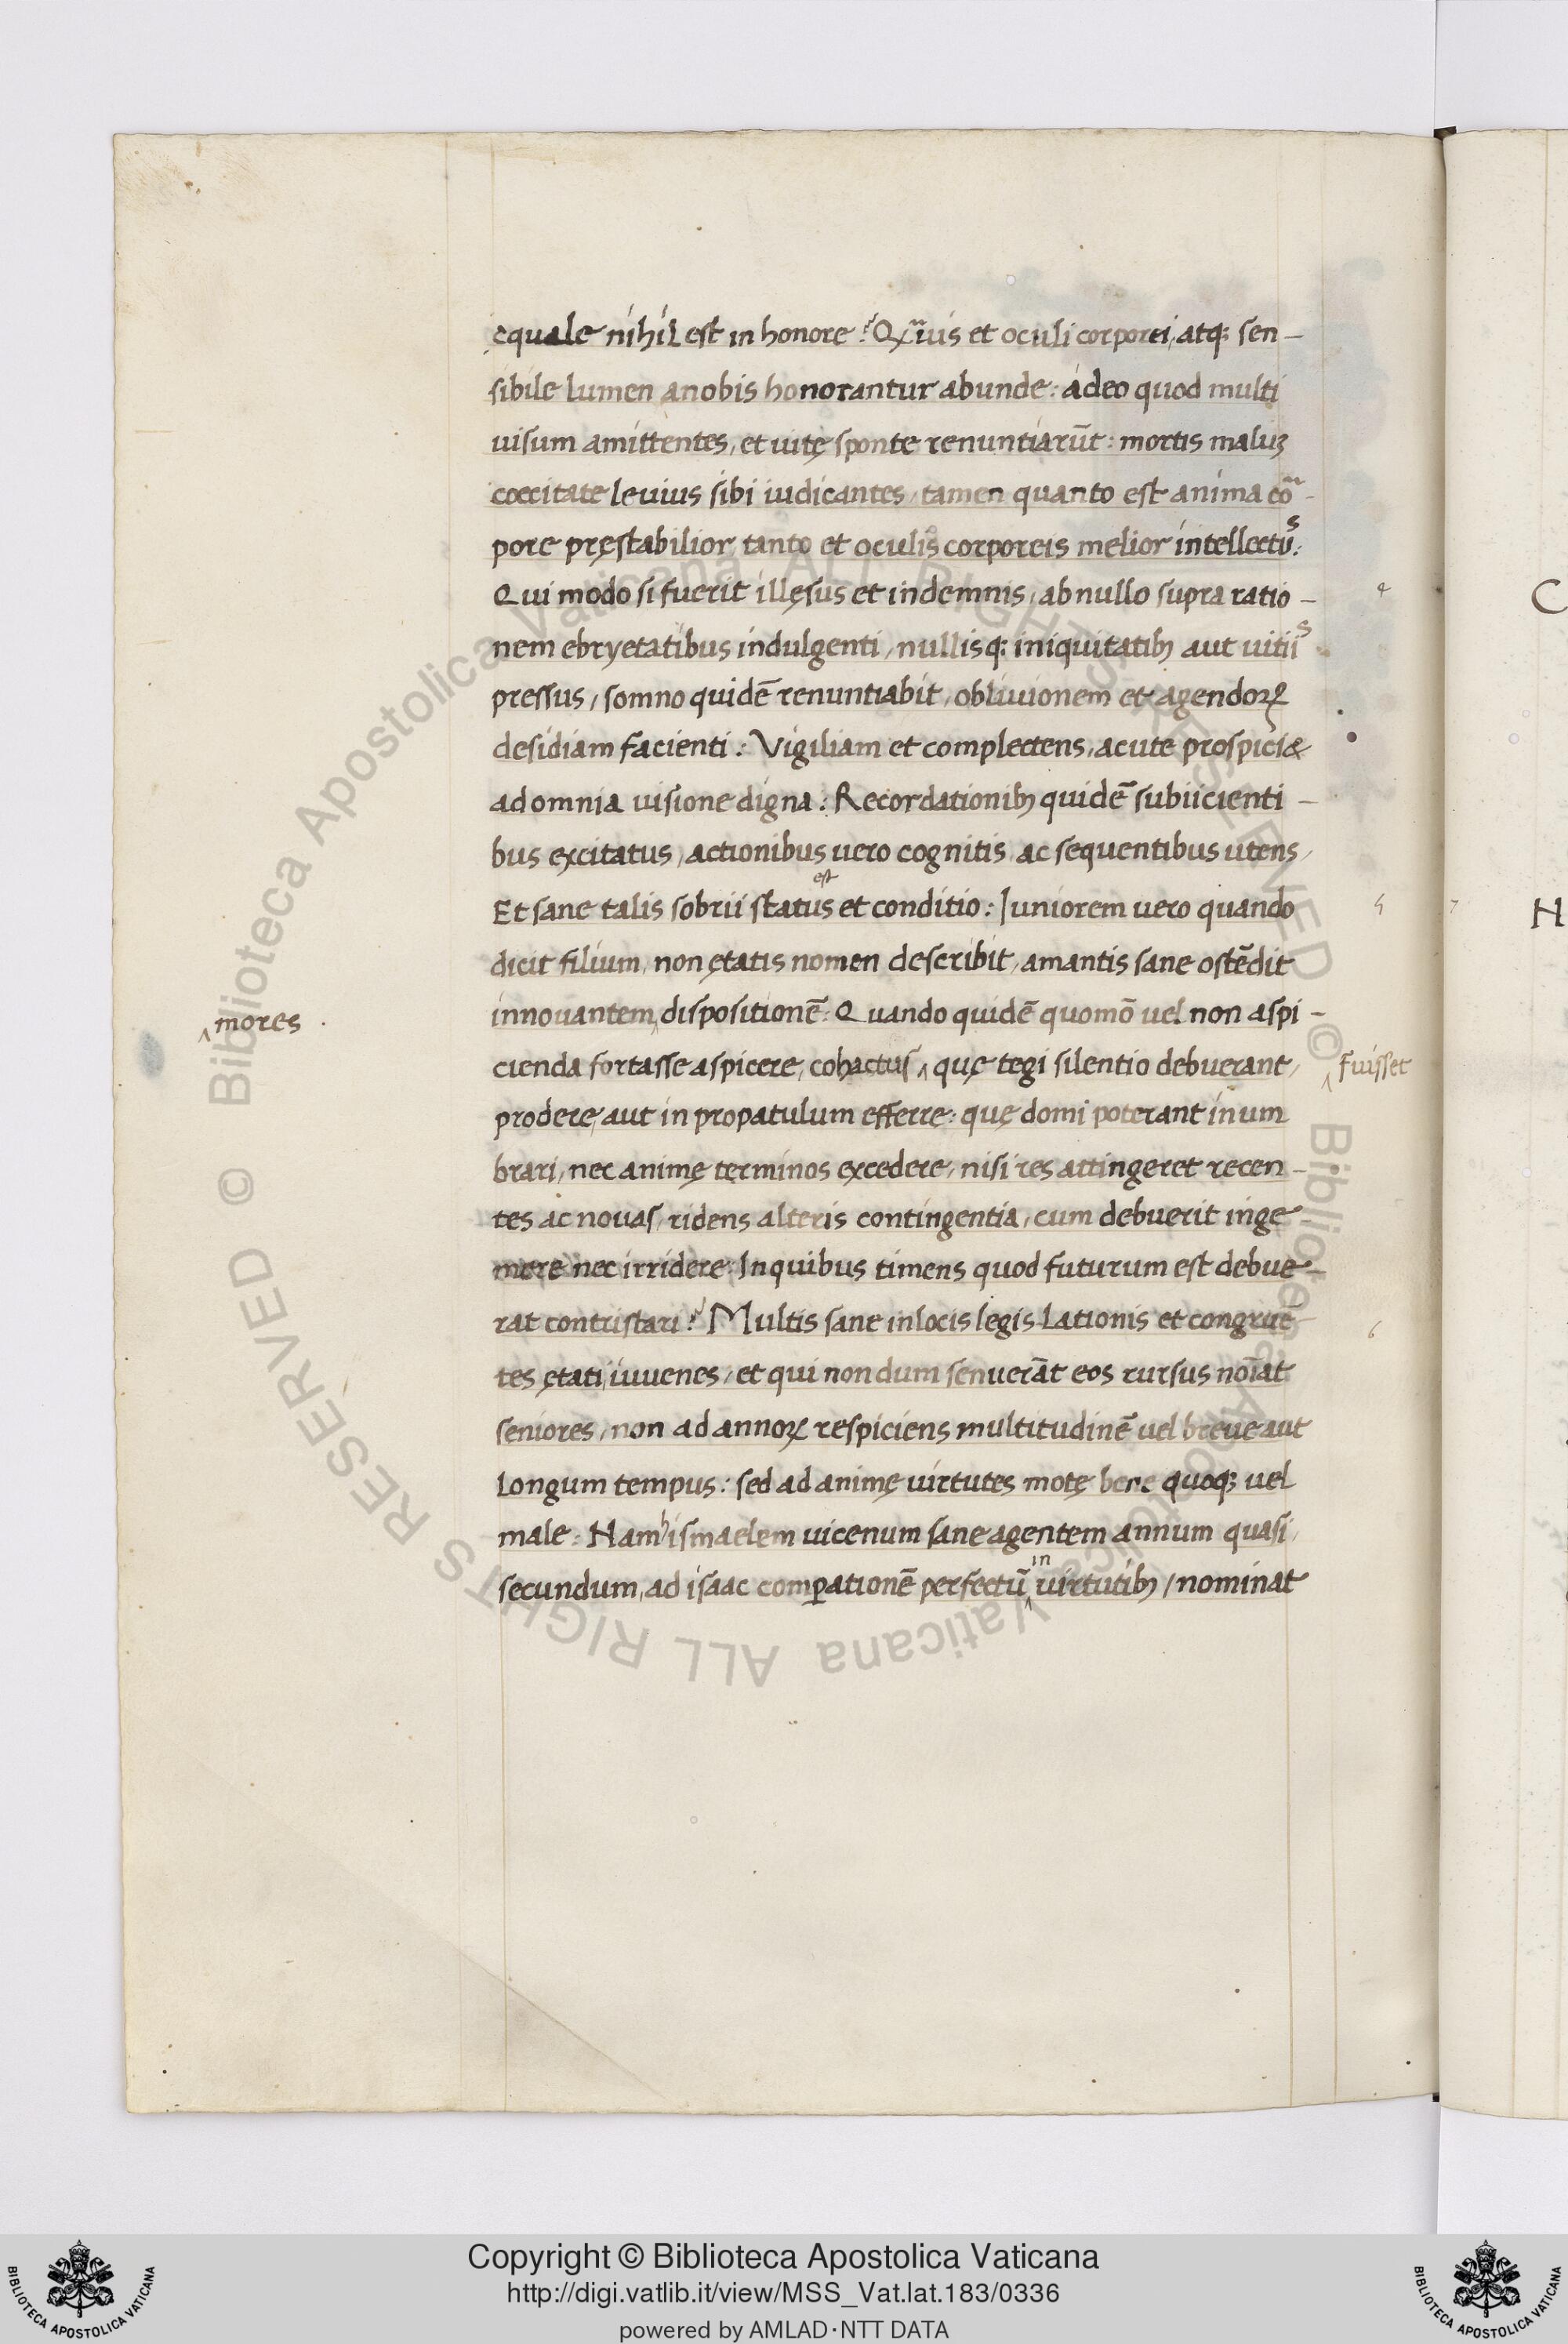 ęquale nihil est in honore? Qxuĩs et oculi corporei, atq; sen-
sibile lumen anobis honorantur abunde: adeo quod multi
uisum amittentes, et uitę sponte renuntiarũt: mortis maluʒ
coecitate leuius sibi iudicantes, tamen quanto est anima cõ-
pore pręstabilior, tanto et oculis corporeis melior intellectus:
Qui modo si fuerit illęsus et indemnis, ab nullo supra ratio-
nem ebryetatibus indulgenti, nullisq; iniquitatibȝ aut uitiis
pressus, somno quidẽ renuntiabit, obliuionem et agendoꝝ
desidiam facienti: Vigiliam et complectens, acute prospici&
ad omnia uisione digna: Recordationibȝ quidẽ subiicienti-
bus excitatus, actionibus uero cognitis, ac sequentibus utens,
est
Et sane talis sobrii status et conditio: Juniorem uero quando
dicit filium, non ętatis nomen describit, amantis sane ostẽdit
innouantem, dispositionẽ: Quando quidẽ quomõ uel non aspi-
mores.
cienda fortasse aspicere, cohactus, quę tegi silentio debuerant,
fuisset
prodere, aut in propatulum efferre: quę domi poterant inum
brari, nec animę terminos excedere, nisi res attingeret recen-
tes ac nouas, ridens alteris contingentia, cum debuerit inge-
mere nec irridere: In quibus timens quod futurum est debue-
rat contristari? Multis sane in locis legis lationis et congruẽ
tes ętati, iuuenes, et qui nondum senuerãt eos rursus noĩat
seniores, non ad annoꝝ respiciens multitudinẽ uel breue aut
longum tempus: sed ad animę uirtutes motę bene quoq; uel
male: Nam ismaelem uicenum sane agentem annum quasi,
in
secundum, ad isaac comꝑationẽ perfectũ uirtutibȝ, nominat
4
5
6
7
C
H
Copyright © Biblioteca Apostolica Vaticana
http://digi.vatlib.it/view/MSS_Vat.lat.183/0336
powered by AMLAD·NTT DATA
© Biblioteca Apostolica Vaticana ALL RIGHTS RESERVED © Biblioteca Apostolica Vaticana ALL RIGHTS RESERVED
BIBLIOTECA APOSTOLICA VATICANA
BIBLIOTECA APOSTOLICA VATICANA